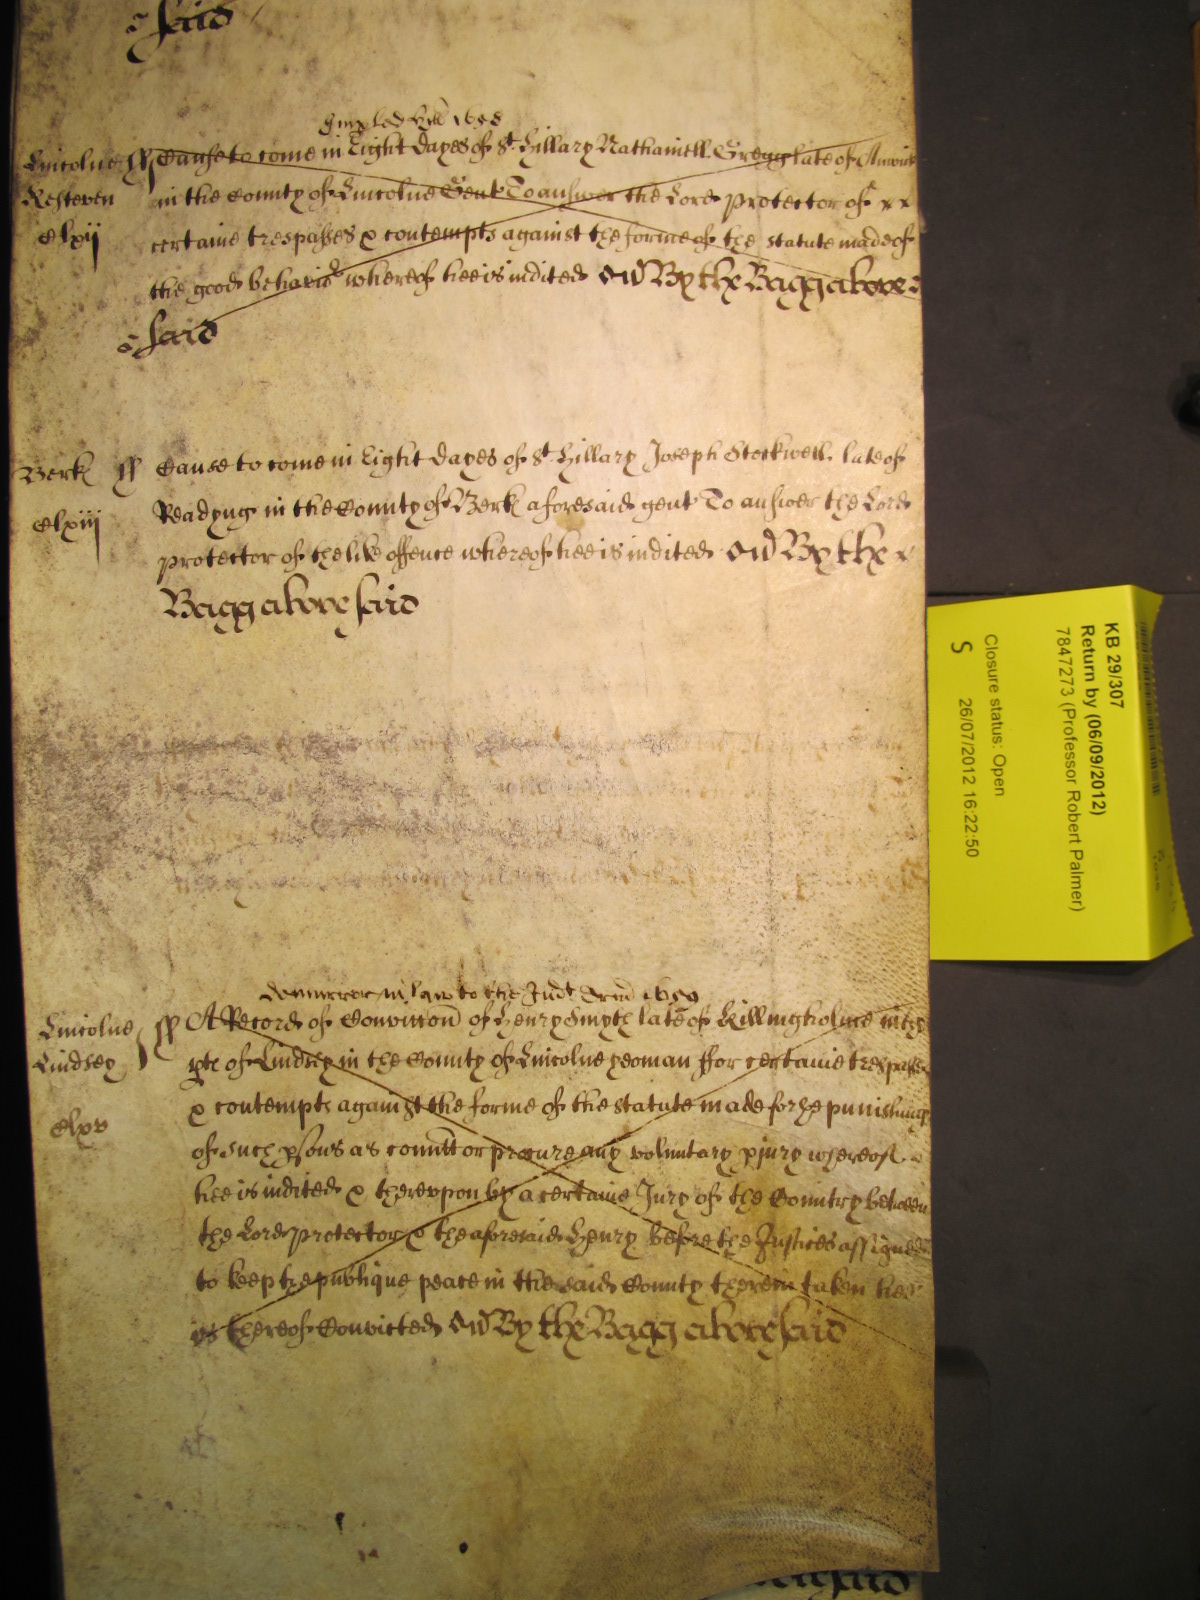 said
Impled Hill 1658
Lincolne ss Cause to come in Eight dayes of St Hillary Nathaniell Gregg late of Anwick
Kesteven in the County of Lincolne Gent To answer the Lord Protector of
clxij certaine trespasses & contempts against the forme of the statute made of
the good behavior whereof hee is indited By the Bagg above
said
Berk ss Cause to come in Eight dayes of St Hillary Joseph Stockwell late of
clxiij Readyng in the County of Berk aforesaid gent To answer the Lord
Protector of the like offence whereof hee is indited By the
Bagg above said
demurrer in law to the Judt Trin 1659
Lincolne ss A Record of Conviccon of Henry Smyth late of Killingholme in the
Lindsey pte of Lindsey in the County of Lincolne yeoman ffor certaine trespasses
clxv & contempts against the forme of the statute made for the punishing
of such psons as comitt or procure any voluntary pjury whereof
hee is indited & thereupon by a certaine Jury of the Country between
the Lord Protector & the aforesaid Henry before the Justices assigned
to keep the publique peace in the said County therein taken hee
is thereof Convicted By the Bagg above said
said
KB 29/307
Return by (06/09/2012)
7847273 (Professor Robert Palmer)
Closure status: Open
S 26/07/2012 16:22:50